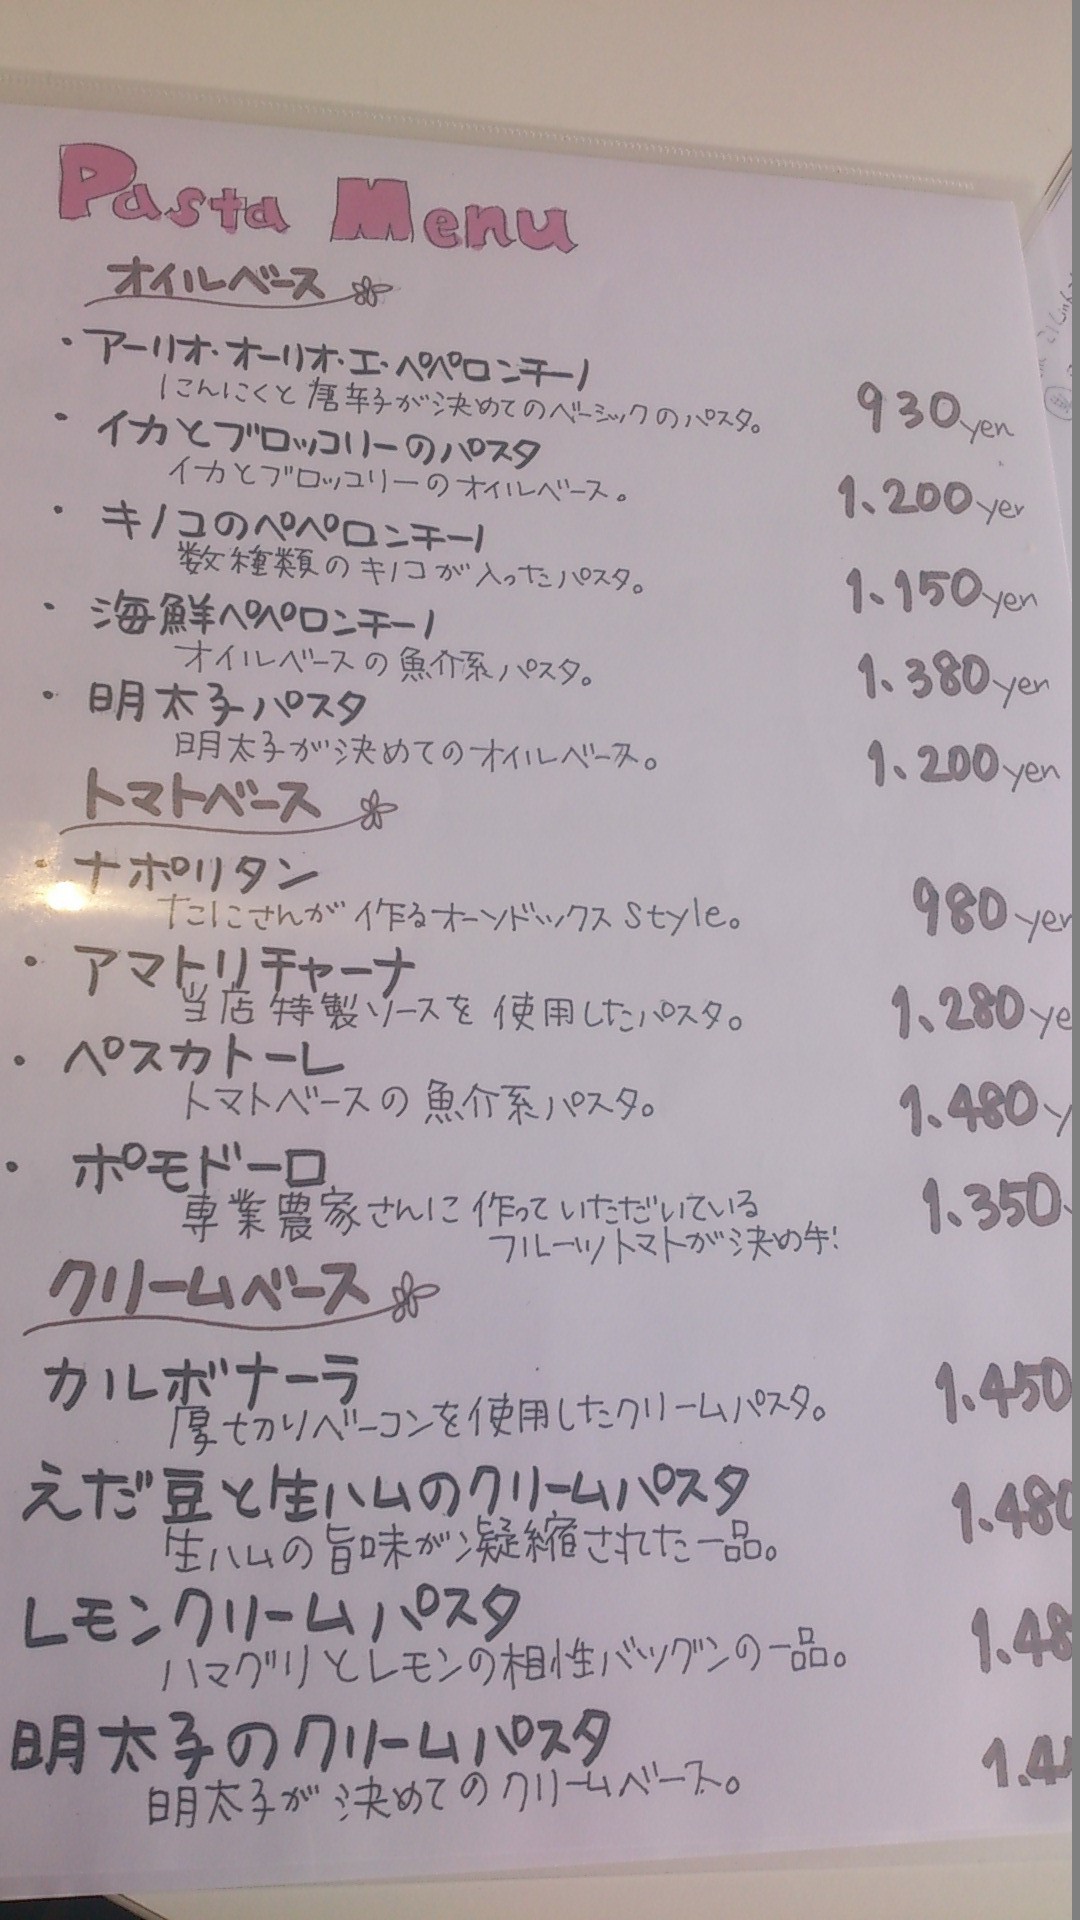 Pasta Menu
オイルベース
・アーリオ・オーリオ・エ・ペペロンチーノ
にんにくと唐辛子が決めてのベーシックのパスタ。 930yen
・イカとブロッコリーのパスタ
イカとブロッコリーのオイルベース。 1.200yen
・キノコのペペロンチーノ
数種類のキノコが入ったパスタ。 1.150yen
・海鮮ペペロンチーノ
オイルベースの魚介系パスタ。 1.380yen
・明太子パスタ
明太子が決めてのオイルベース。 1.200yen
トマトベース
・ナポリタン
たにさんが作るオーソドックスstyle。 980yen
・アマトリチャーナ
当店特製ソースを使用したパスタ。 1.280ye
・ペスカトーレ
トマトベースの魚介系パスタ。 1.480y
・ポモドーロ
専業農家さんに作っていただいている 1.350
フルーツトマトが決め手!
クリームベース
カルボナーラ
厚切りベーコンを使用したクリームパスタ。 1.450
えだ豆と生ハムのクリームパスタ
生ハムの旨味が凝縮された一品。 1.480
レモンクリームパスタ
ハマグリとレモンの相性バツグンの一品。 1.48
明太子のクリームパスタ
明太子が決めてのクリームベース。 1.4